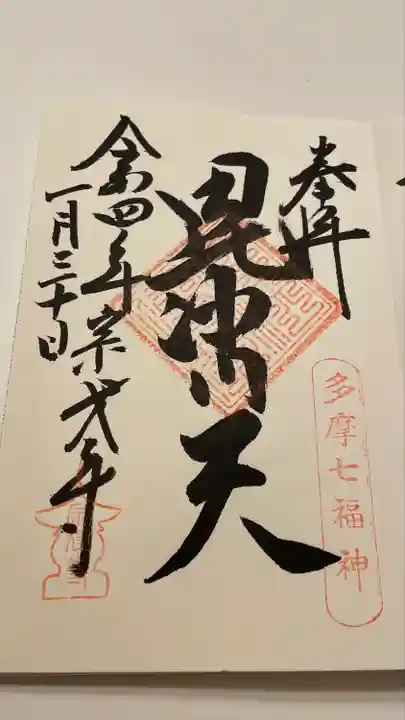 奉拝
多摩七福神
毘沙門天
令和四年宗保院
一月三十日